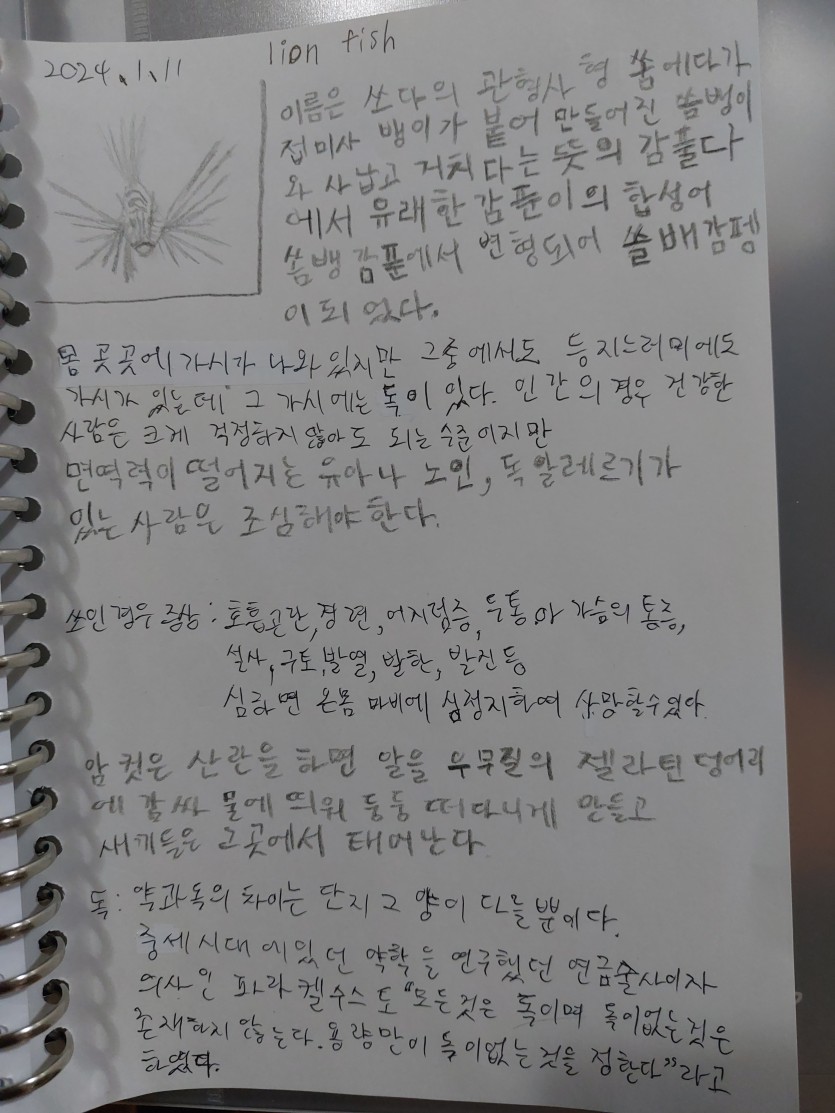 2024.1.11
lion fish
이름은 쏘다의 관형사 형 쏨에다가
접미사 뱅이가 붙어 만들어진 쏨벵이
와 사납고 거치다는 뜻의 감풀다
에서 유래한 감푼이의 합성어
쏨뱅 감푼에서 변형되어 쏠배감펭
이 되었다.
몸 곳곳에 가시가 나와 있지만 그중에서도 등지느러미에도
가시가 있는데 그 가시에는 독이 있다. 인간의 경우 건강한
사람은 크게 걱정하지 않아도 되는 수준이지만
면역력이 떨어지는 유아나 노인, 독 알레르기가
있는 사람은 조심해야 한다.
쏘인경우 증상: 호흡곤란, 경련, 어지럼증, 두통이나 가슴의 통증,
설사, 구토, 발열, 발한, 발진 등
심하면 온몸 마비에 심정지하여 사망할수있다.
암컷은 산란을 하면 알을 우무질의 젤라틴 덩어리
에 감싸 물에 띄워 둥둥 떠다니게 만들고
새끼들은 그곳에서 태어난다
독: 약과독의 차이는 단지 그 양이 다를 뿐이다.
중세시대에 있던 약학을 연구했던 연금술사이자
의사인 파라켈수스도 "모든것은 독이며 독이없는것은
존재하지 않는다. 용량만이 독이없는것을 정한다"라고
하였다.